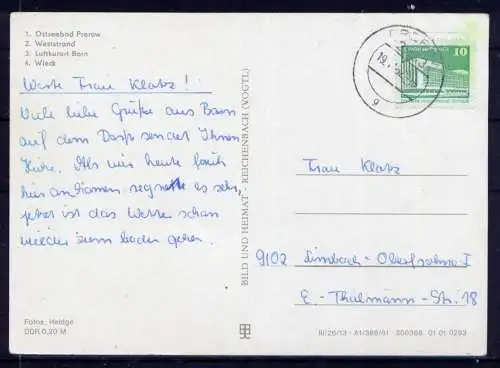 1. Ostseebad Prerow
2. Weststrand
3. Luftkurort Born
4. Wieck
Werte Frau Klatz!
Viele liebe Grüße aus Born
auf dem Darß sendet Ihnen
Als wir heute früh
hier ankamen regnete es sehr,
jetzt ist das Wetter schon
wieder zum baden gehen.
Fotos: Heidge
DDR 0,20 M
BILD UND HEIMAT REICHENBACH (VOGTL)
III/26/13 A1/366/81 500366 01 01 0263
10
19.
g
Frau Klatz
9102 Limbach-Oberfrohna I
E.-Thälmann-Str. 18